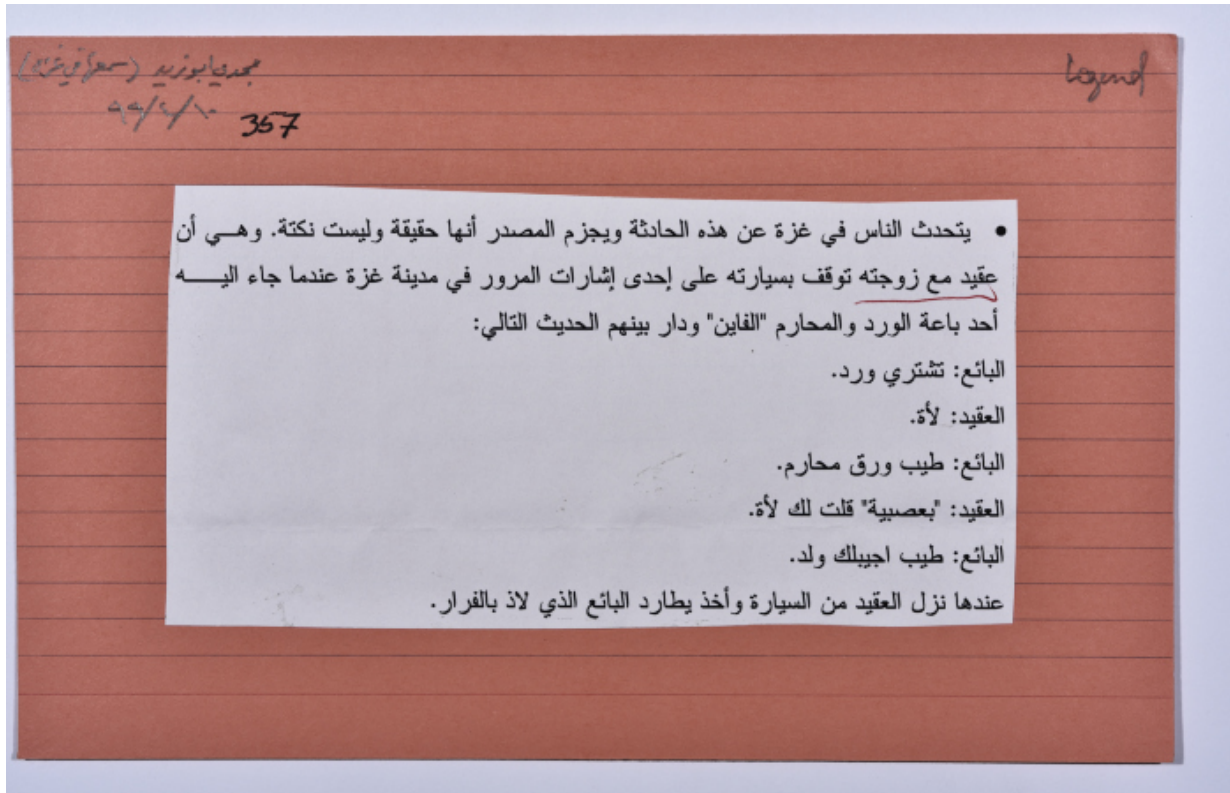 مجدي ابوزيد (سمعها في غزة)
Legend
٩٩/٢/١٠
357
• يتحدث الناس في غزة عن هذه الحادثة ويجزم المصدر أنها حقيقة وليست نكتة. وهي أن
عقيد مع زوجته توقف بسيارته على إحدى إشارات المرور في مدينة غزة عندما جاء اليه
أحد باعة الورد والمحارم "الفاين" ودار بينهم الحديث التالي:
البائع: تشتري ورد.
العقيد: لأة.
البائع: طيب ورق محارم.
العقيد: "بعصبية" قلت لك لأة.
البائع: طيب اجيبلك ولد.
عندها نزل العقيد من السيارة وأخذ يطارد البائع الذي لاذ بالفرار.